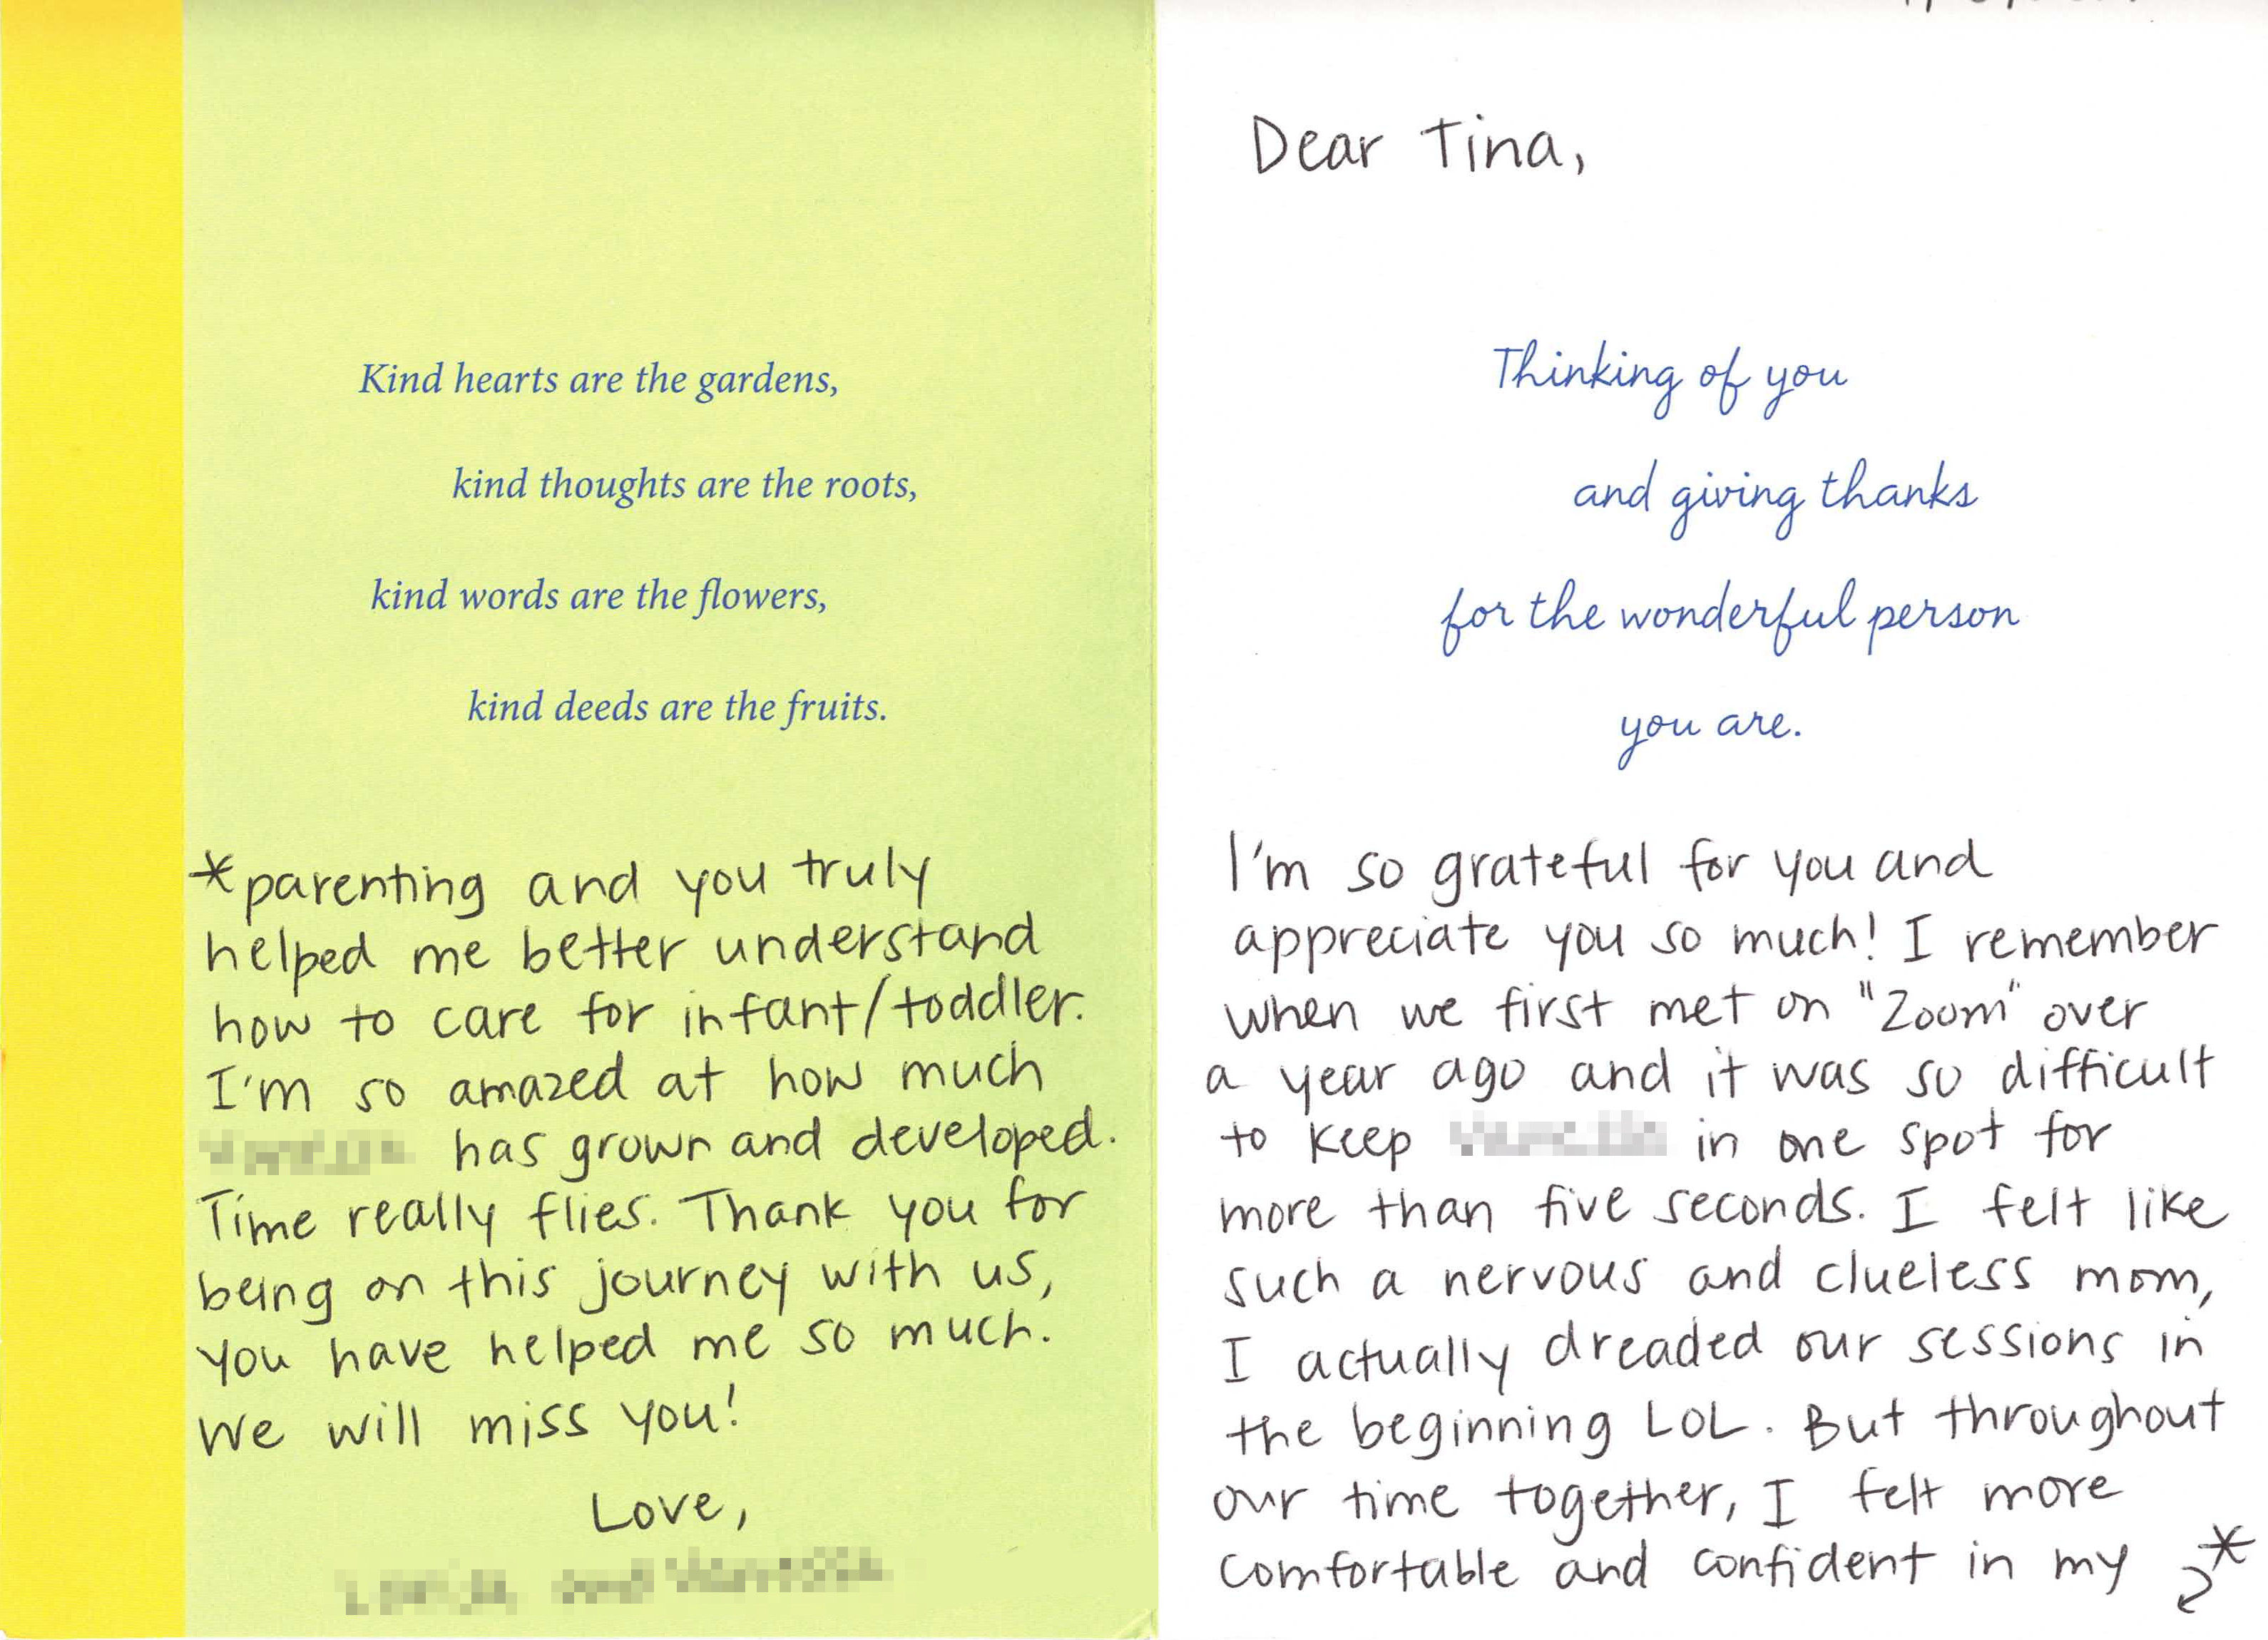 Dear Tina,
Thinking of you
and giving thanks
for the wonderful person
you are.
I'm so grateful for you and
appreciate you so much! I remember
when we first met on "Zoom" over
a year ago and it was so difficult
to keep in one spot for
more than five seconds. I felt like
such a nervous and clueless mom,
I actually dreaded our sessions in
the beginning LOL. But throughout
our time together, I felt more
comfortable and confident in my *
Kind hearts are the gardens,
kind thoughts are the roots,
kind words are the flowers,
kind deeds are the fruits.
*parenting and you truly
helped me better understand
how to care for infant/toddler.
I'm so amazed at how much
has grown and developed.
Time really flies. Thank you for
being on this journey with us,
you have helped me so much.
We will miss you!
Love,
and